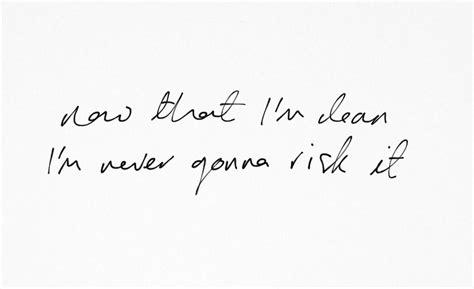 now that I'm clean
I'm never gonna risk it